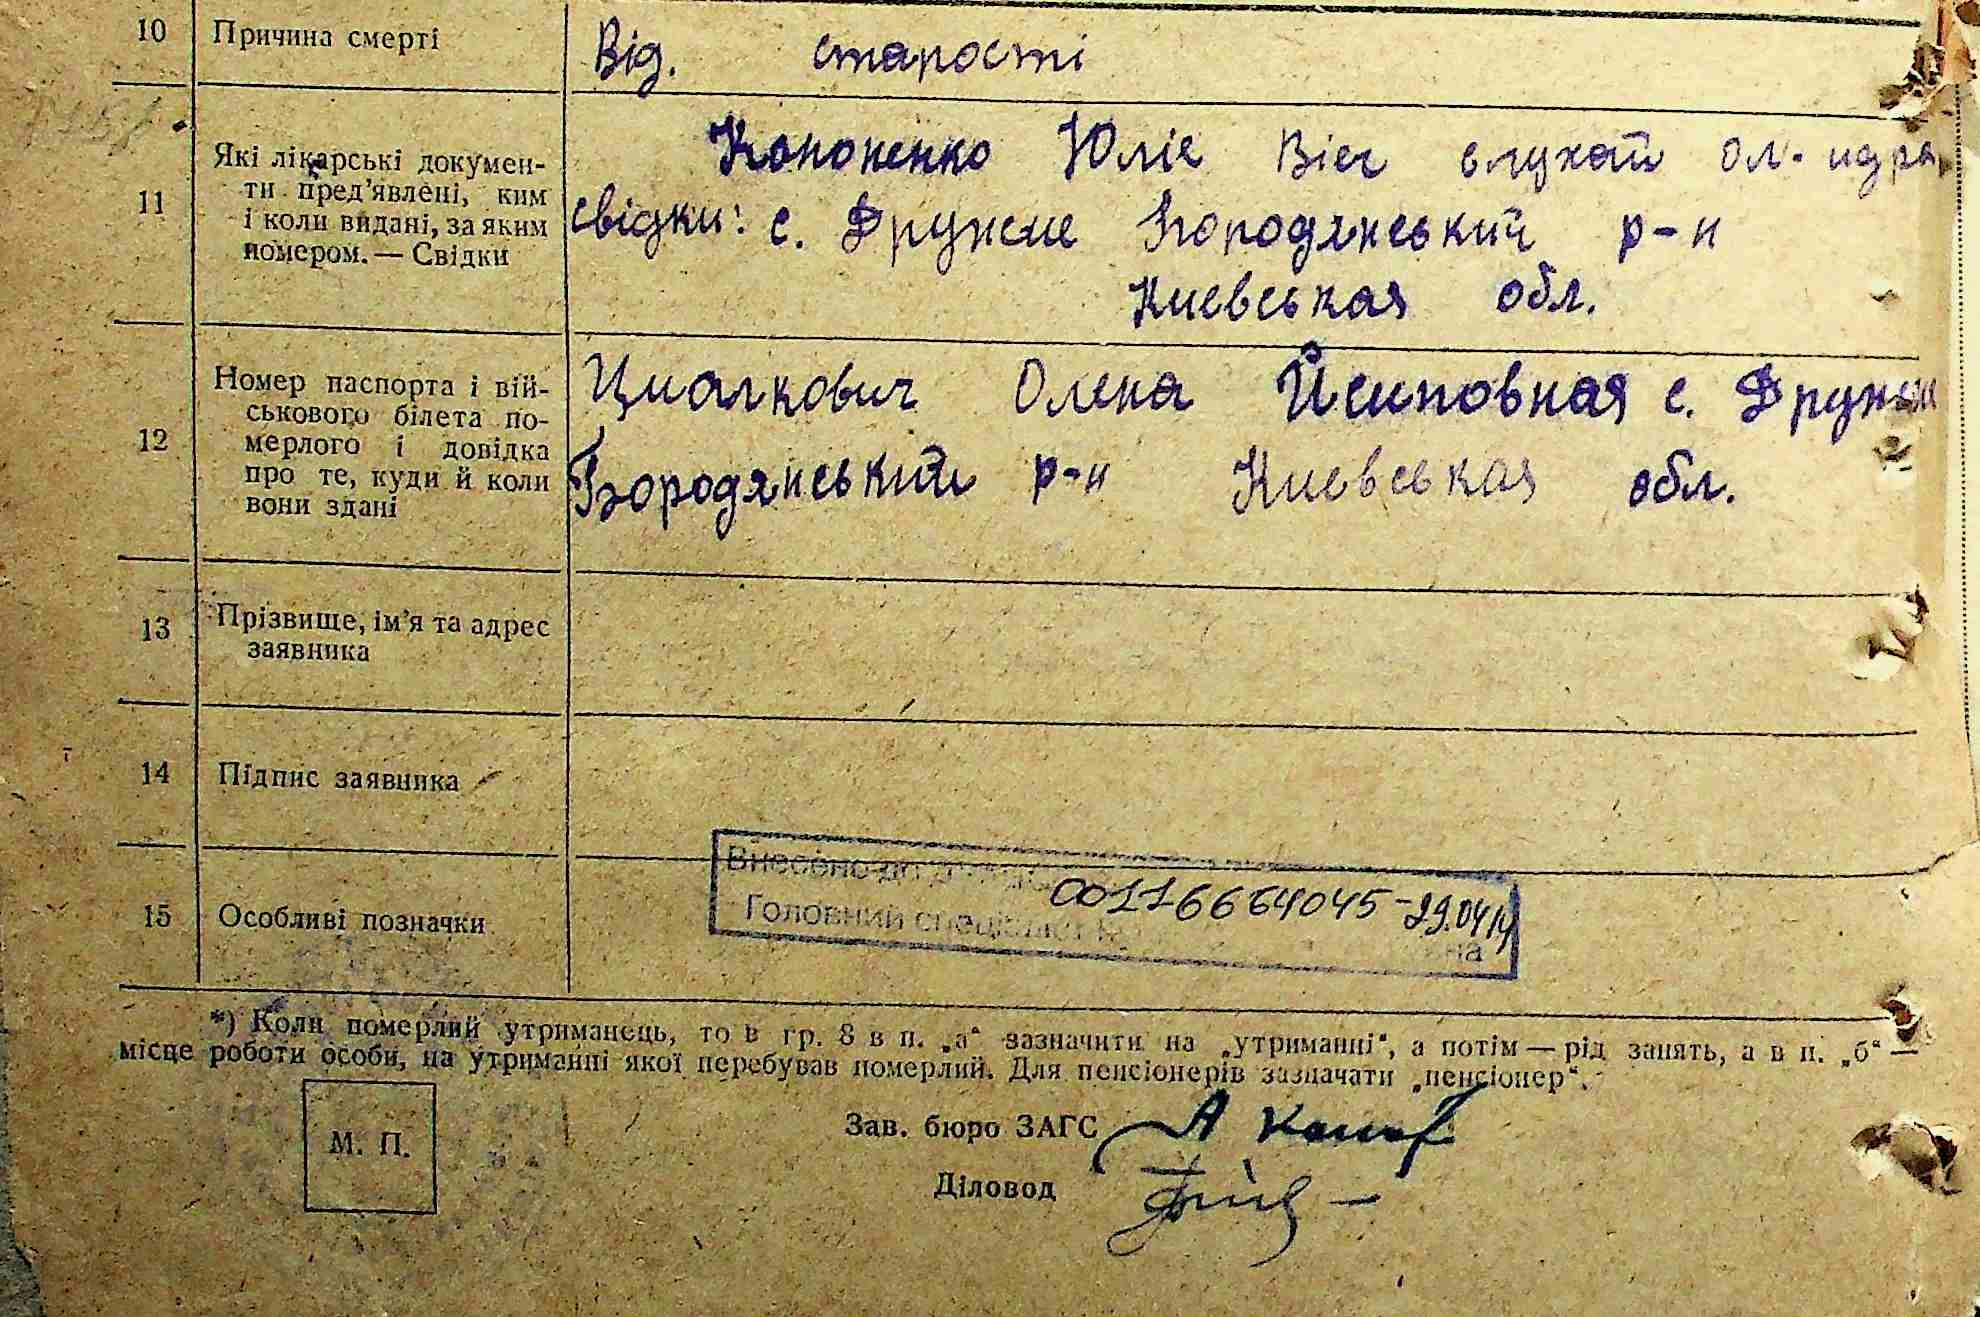 10 Причина смерті
Від. старості
11 Які лікарські докумен-
ти пред’явлені, ким
і коли видані, за яким
номером. — Свідки
Кононенко Юліє
свідки: с. Дружне Бородянський р-н
Киевськая обл.
12 Номер паспорта і вій-
ськового білета по-
мерлого і довідка
про те, куди й коли
вони здані
Олена с. Дружне
Бородянський р-н Киевськая обл.
13 Прізвище, ім’я та адрес
заявника
14 Підпис заявника
15 Особливі позначки
Внесено до
00116664045-29.04.14
Головний спеціаліст
на
*) Коли померлий утриманець, то в гр. 8 в п. „а“ зазначити на „утриманні“, а потім — рід занять, а в п. „б“ —
місце роботи особи, на утриманні якої перебував померлий. Для пенсіонерів зазначати „пенсіонер“.
М. П.
Зав. бюро ЗАГС
Діловод